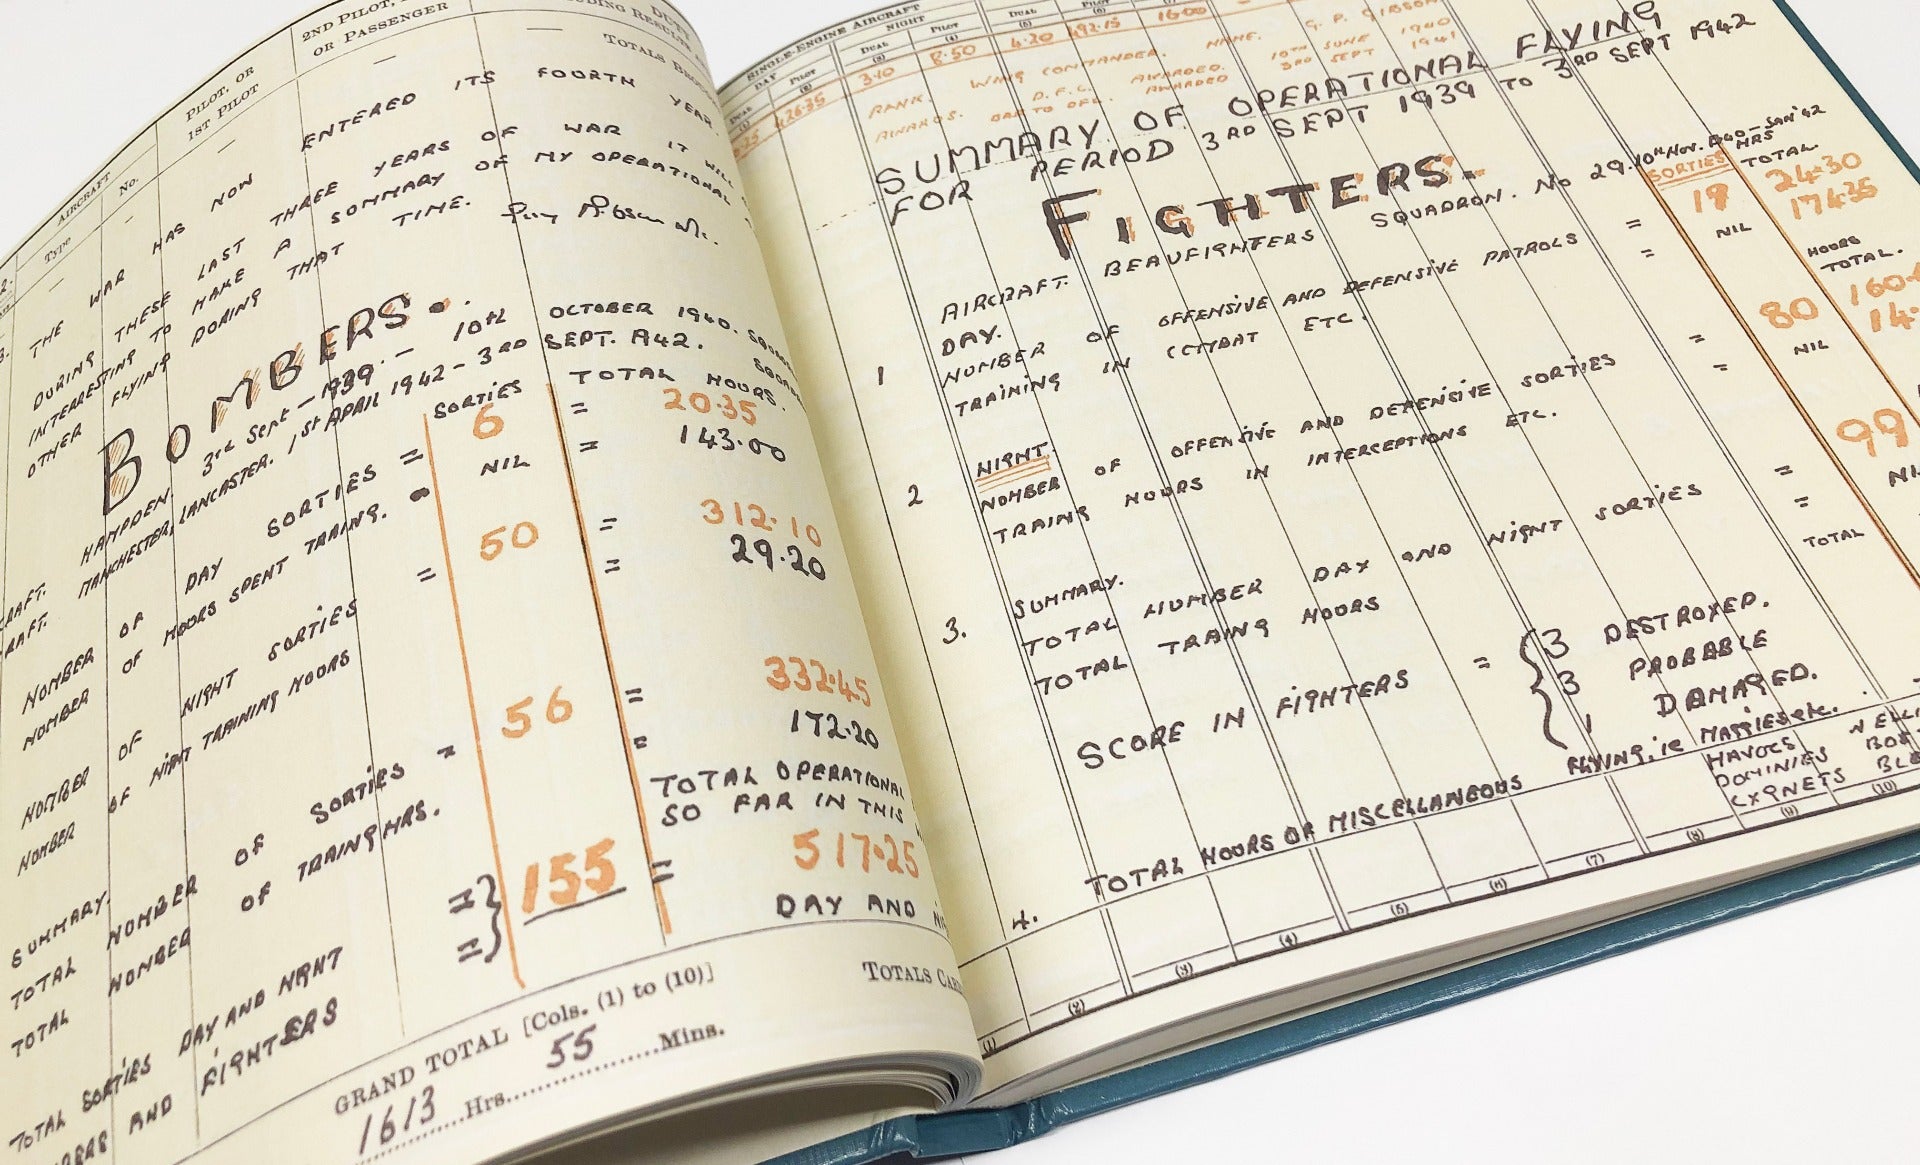 AIRCRAFT
Type
No.
PILOT, OR
1ST PILOT
2ND PILOT,
OR PASSENGER
DUTY
TOTALS
THE WAR HAS NOW ENTERED ITS FOURTH YEAR.
DURING THESE LAST THREE YEARS OF WAR IT WILL
INTERRESTING TO MAKE A SUMMARY OF MY OPERATIONAL
OTHER FLYING DURING THAT TIME.
BOMBERS.
HAMPDEN. 3rd Sept - 1939. - 10th OCTOBER 1940.
MANCHESTER, LANCASTER. 1st APRIL 1942 - 3RD SEPT. 1942.
SORTIES TOTAL HOURS.
NUMBER OF DAY SORTIES = 6 = 20.35
NUMBER OF HOURS SPENT TRAING. = NIL = 143.00
NUMBER OF NIGHT SORTIES = 50 = 312.10
NUMBER OF NIGHT TRAINING HOURS = 29.20
SUMMARY.
TOTAL NUMBER OF SORTIES = 56 = 332.45
TOTAL NUMBER OF TRAING HRS. = 172.20
TOTAL OPERATIONAL
SO FAR IN THIS
TOTAL SORTIES DAY AND NIGHT = 155 = 517.25
AND FIGHTERS =
DAY AND
GRAND TOTAL [Cols. (1) to (10)]
1613 Hrs. 55 Mins.
TOTALS
SINGLE-ENGINE AIRCRAFT
DAY NIGHT
DUAL PILOT DUAL PILOT DUAL
(1) (2) (3) (4) (5) (6)
426.35 3.10 8.50 4.20 492.15 16.00
RANK. WING COMMANDER. NAME. G. P. GIBSON
AWARDS. D.F.C. AWARDED. 10TH JUNE 1940
BAR TO DFC. AWARDED 3RD SEPT 1941
SUMMARY OF OPERATIONAL FLYING
FOR PERIOD 3RD SEPT 1939 TO 3RD SEPT 1942
FIGHTERS.
AIRCRAFT. BEAUFIGHTERS SQUADRON. No 29. 10th Nov. 1940 - JAN '42
SORTIES HRS TOTAL
1 DAY.
NUMBER OF OFFENSIVE AND DEFENSIVE PATROLS = 19 24.30
TRAINING IN COMBAT ETC. = NIL 174.35
HOURS TOTAL.
2 NIGHT.
NUMBER OF OFFENSIVE AND DEFENSIVE SORTIES = 80
TRAING HOURS IN INTERCEPTIONS ETC. = NIL
3. SUMMARY.
TOTAL NUMBER DAY AND NIGHT SORTIES = 99
TOTAL TRAING HOURS =
TOTAL
SCORE IN FIGHTERS = { 3 DESTROYED.
3 PROBABLE
1 DAMAGED.
4. TOTAL HOURS OF MISCELLANEOUS FLYING, ie MAGGIES etc.
HAVOCS
DOMINIES
CYGNETS
(1) (2) (3) (4) (5) (6) (7) (8) (9) (10)